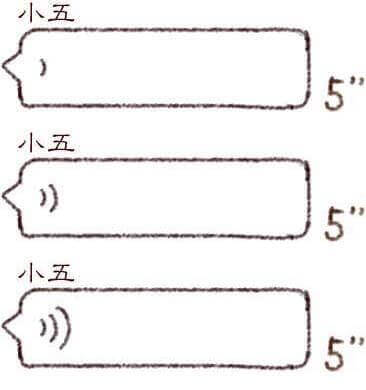 小五
5"
小五
5"
小五
5"